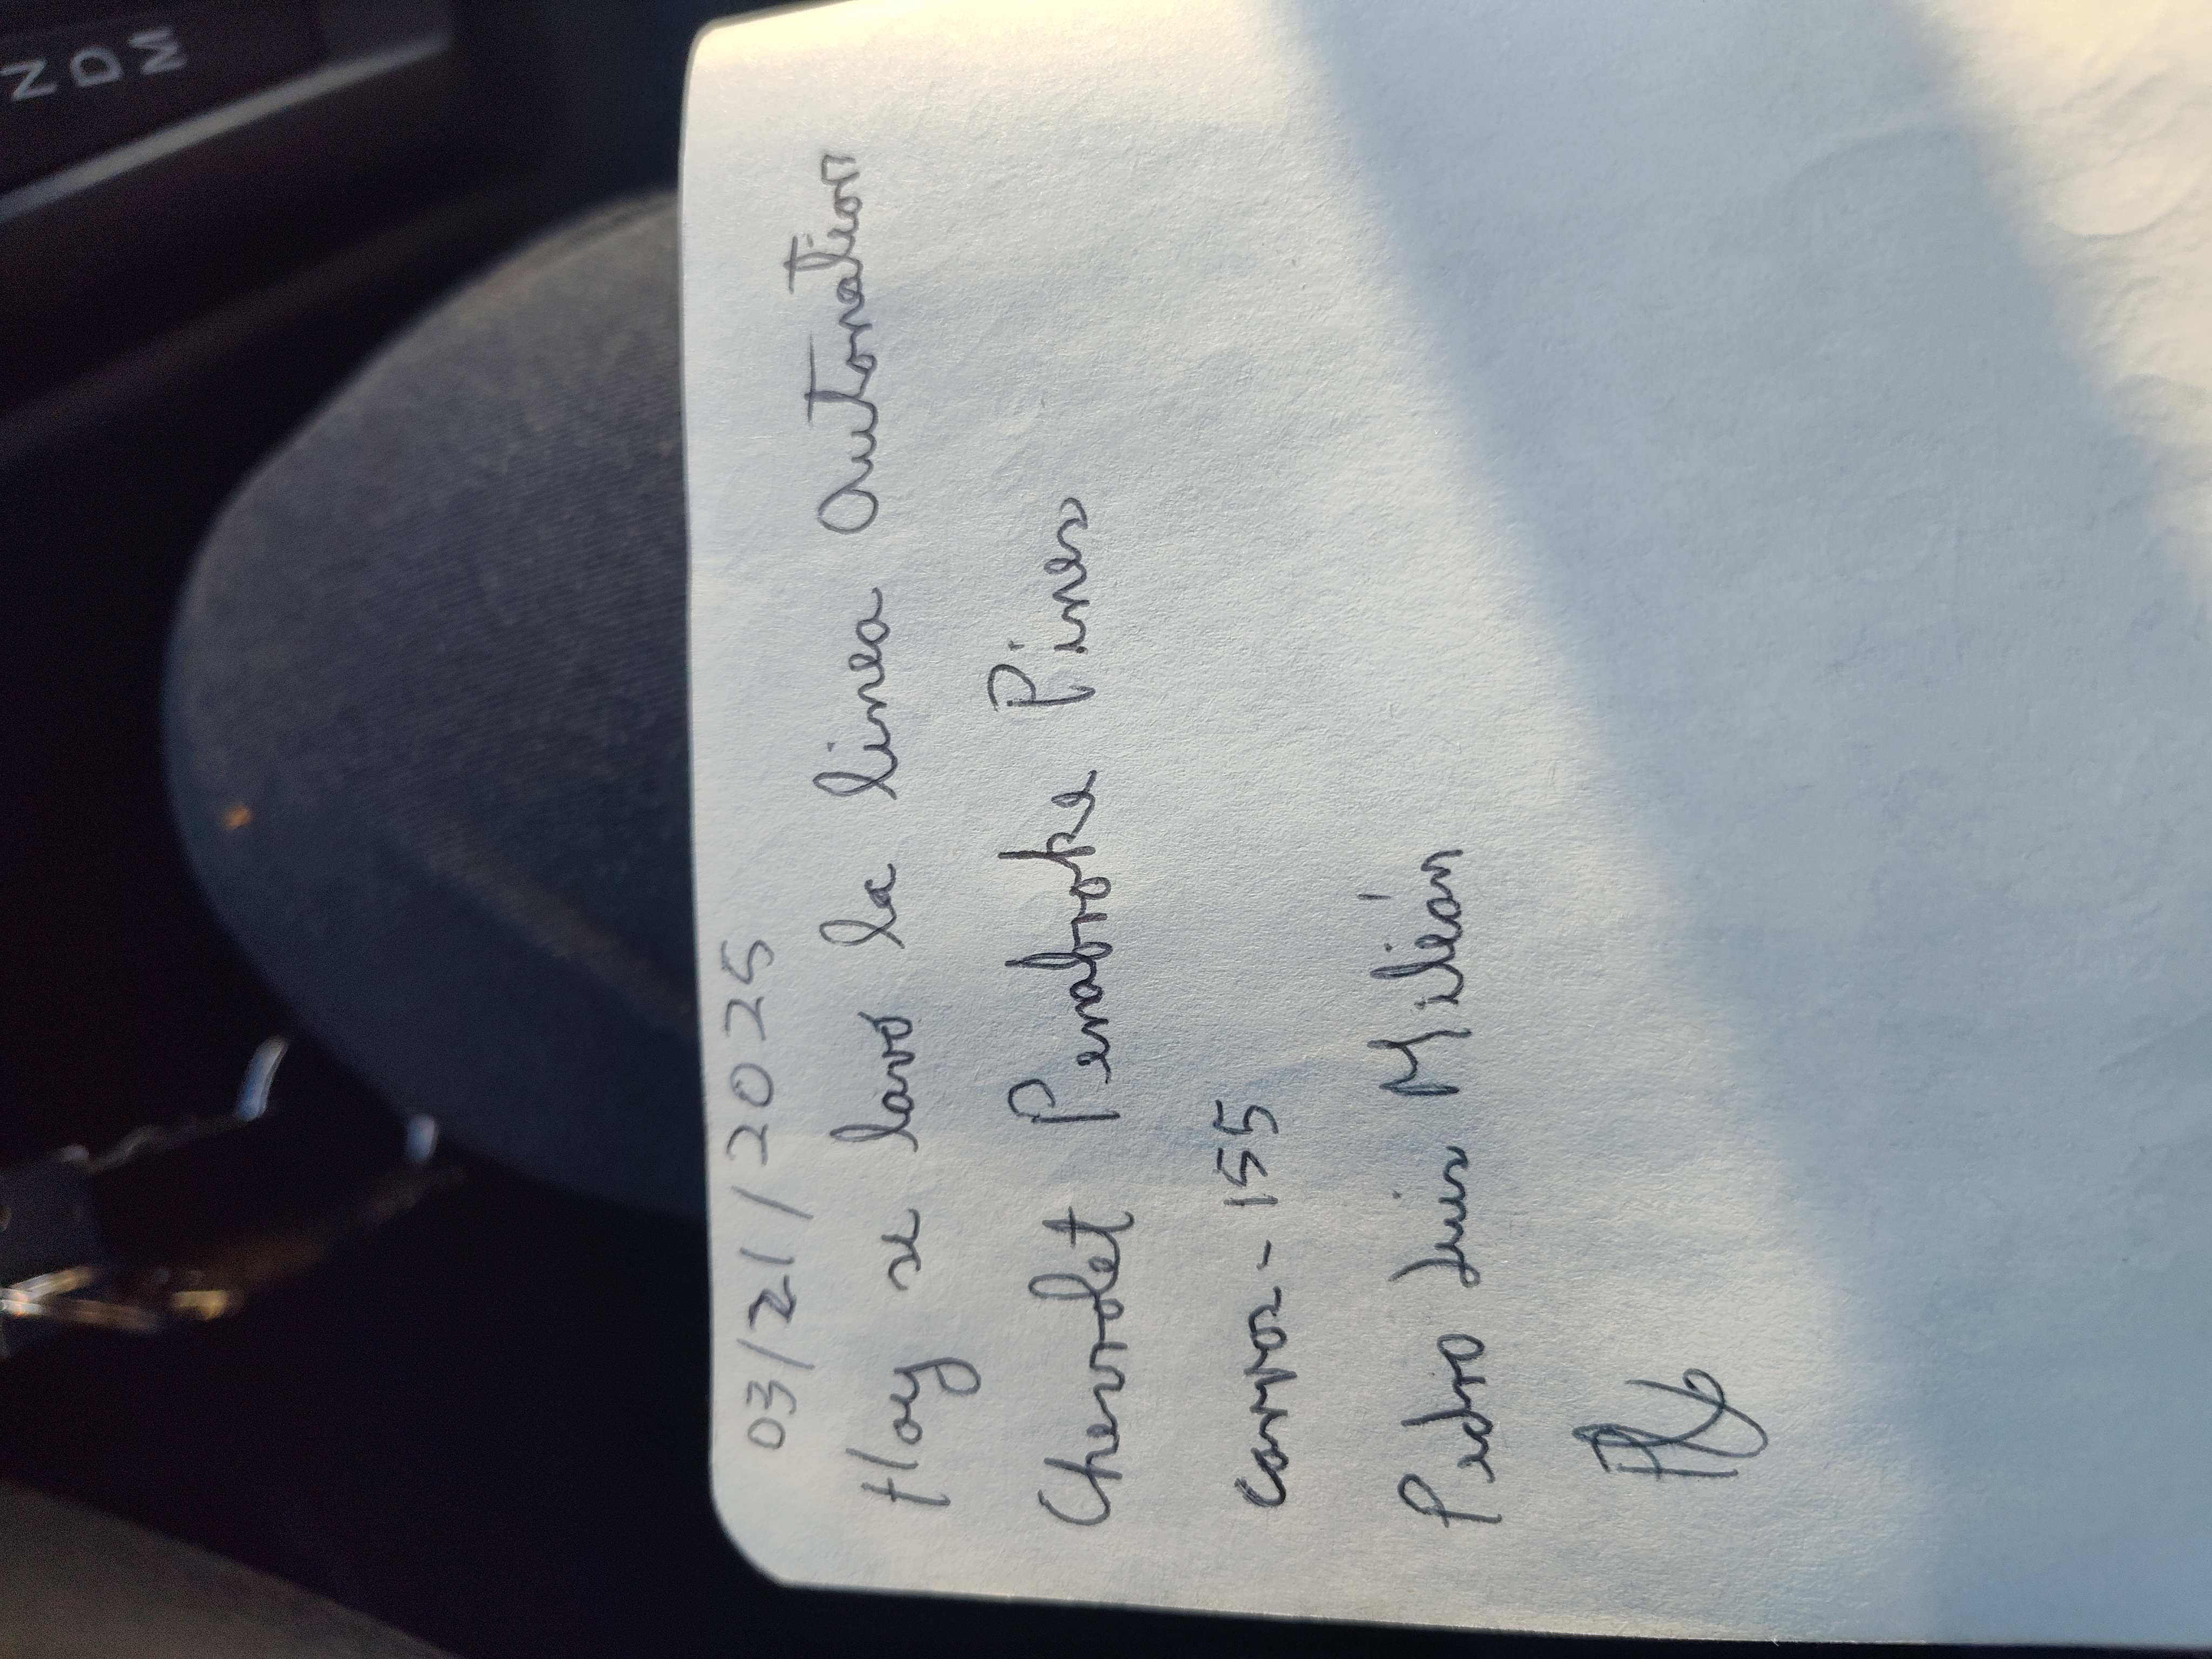 03/21/2025
Hoy se lavó la linea Autonation
Chevrolet Pembroke Pines
carros - 155
Pedro Luis Milián
N D M